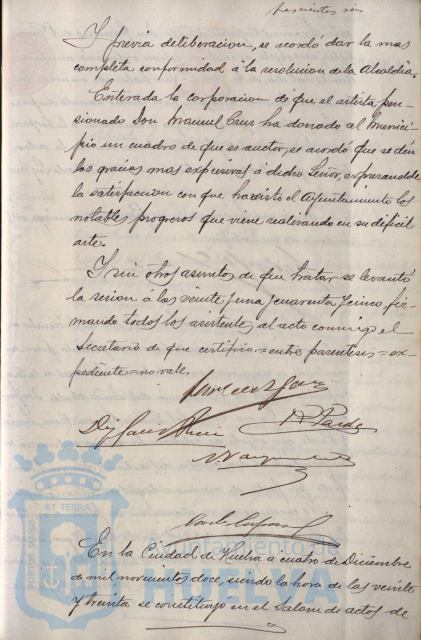 Y previa deliberacion, se acordó dar la mas
completa conformidad á la resolucion de la Alcaldía.
Enterada la corporacion de que el artista pen-
sionado Don Manuel Cruz ha donado al Munici-
pio un cuadro de que es auctor, se acordó que se den
las gracias mas expresivas á dicho Señor, expresandole
la satisfaccion con que ha visto el Ayuntamiento los
notables progresos que viene realizando en su dificil
arte.
Y sin otros asuntos de que tratar se levantó
la sesion á las veinte y una y cuarenta y cinco, fir-
mando todos los asistentes al acto conmigo el
Secretario de que certifico. = entre parentesis = ex-
pediente = no vale.
ET TERRA
PORTUS MARIS
Ayuntamiento de
HUELVA
En la Ciudad de Huelva a cuatro de Diciembre
de mil novecientos doce, siendo la hora de las veinte
y treinta se constituyo en el Salon de actos de